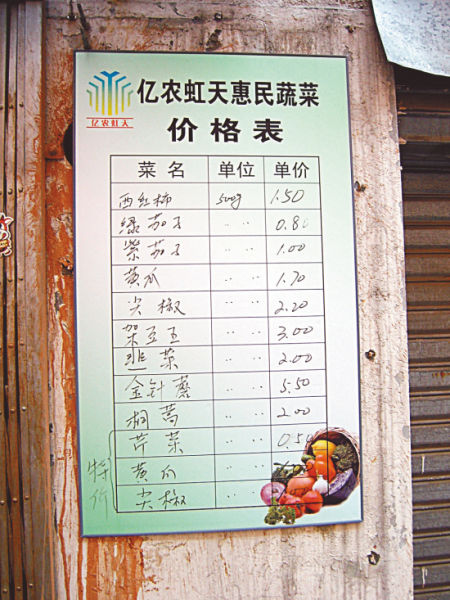 亿农虹天惠民蔬菜
亿农虹天
价格表
菜名 单位 单价
西红柿 500g 1.50
绿茄子 " " 0.80
紫茄子 " " 1.00
黄瓜 " " 1.70
尖椒 " " 2.20
架豆王 " " 3.00
韭菜 " " 2.00
金针蘑 " " 5.50
桐蒿 " " 2.00
特价
芹菜 " " 0.50
黄瓜 " "
尖椒 " "